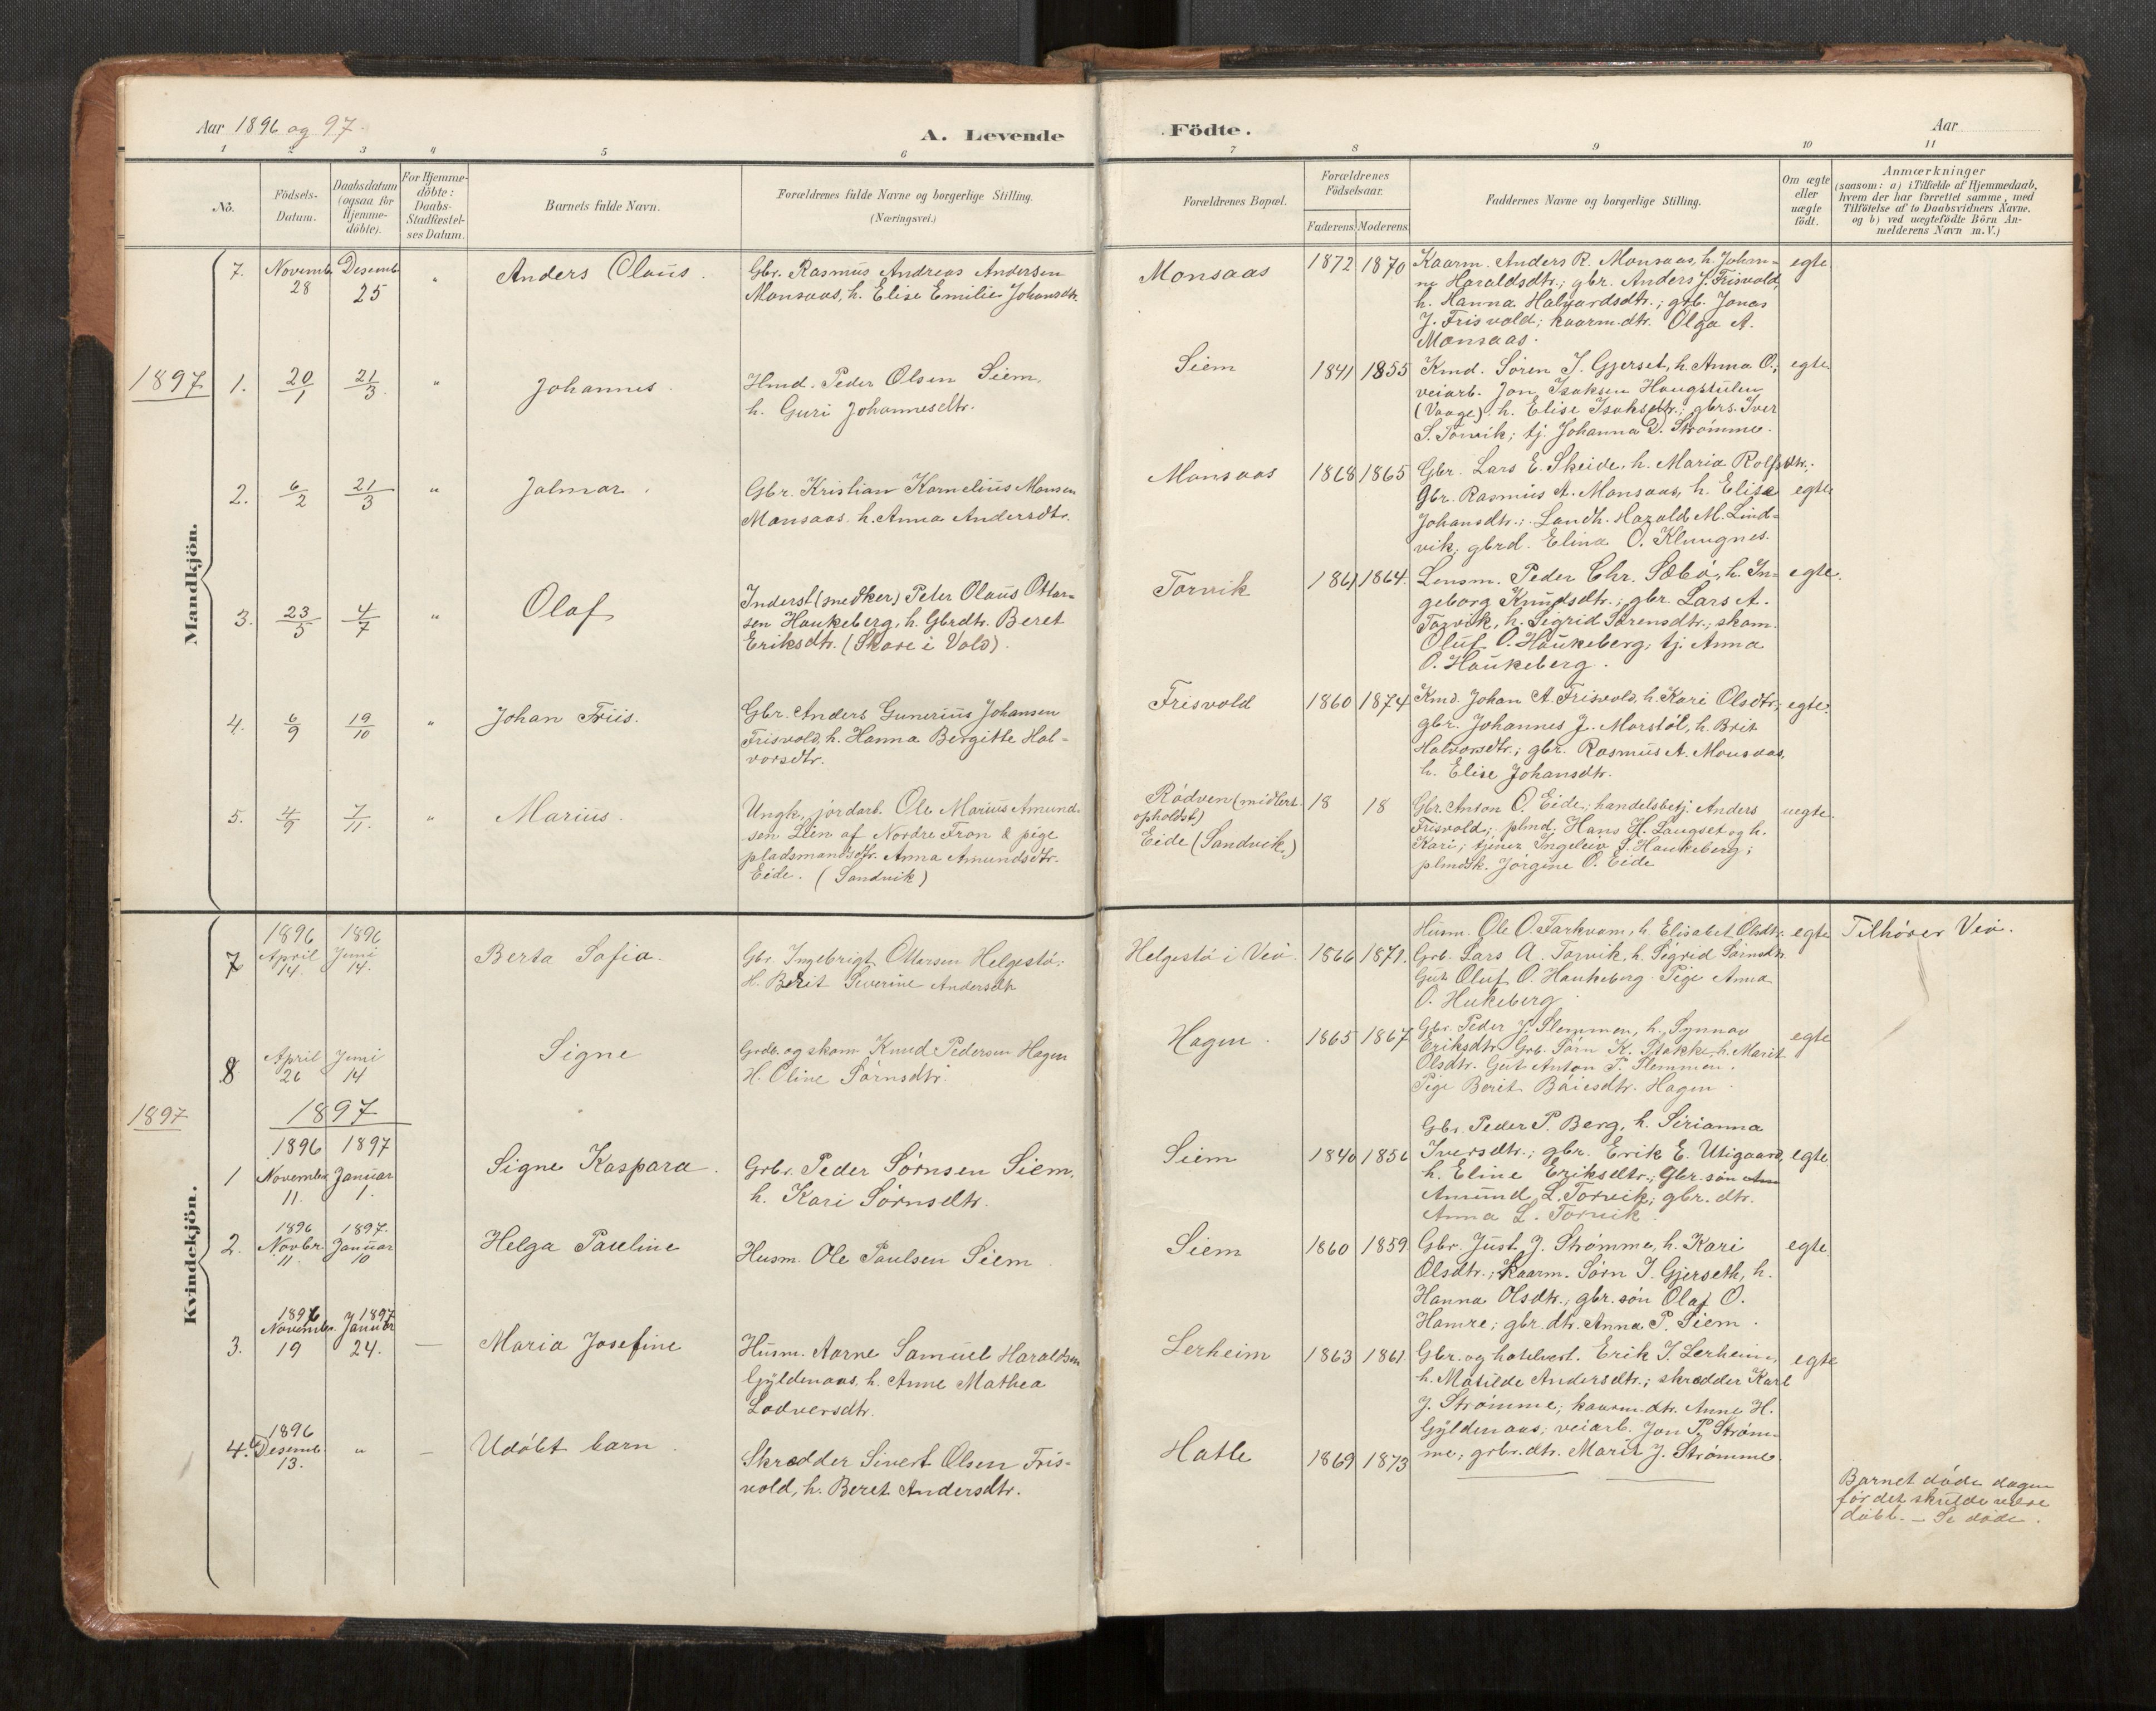 Aar 1896 og 97.
A. Levende Födte.
Aar
1 2 3 4 5 6 7 8 9 10 11
No.
Födsels-
Datum.
Daabsdatum
(ogsaa for
Hjemme-
döbte).
For Hjemme-
döbte:
Daabs-
Stadfæstel-
ses Datum.
Barnets fulde Navn.
Forældrenes fulde Navne og borgerlige Stilling.
(Næringsvei.)
Forældrenes Bopæl.
Forældrenes
Födselsaar.
Faderens. Moderens.
Faddernes Navne og borgerlige Stilling.
Om ægte
eller
uægte
födt.
Anmærkninger
(saasom: a) i Tilfælde af Hjemmedaab,
hvem der har forrettet samme, med
Tilföielse af to Daabsvidners Navne.
og b) ved uægtefödte Börn An-
melderens Navn m. V.)
Mandkjön.
7. Novemb. 28 Desemb. 25 " Anders Olaus.
Gbr. Rasmus Andreas Andersen
Monsaas, h. Elise Emilie Johansdtr.
Monsaas 1872 1870
Kaarm. Anders R. Monsaas, h. Johan-
ne Haraldsdtr.; gbr. Anders J. Frisvold,
h. Hanna Halvardsdtr.; gtb. Jonas
J. Frisvold; kaarm.dtr. Olga A.
Monsaas.
egte
1897 1. 20/1 21/3 " Johannes.
Hmd. Peder Olsen Siem,
h. Guri Johannesdtr.
Siem 1841 1855
Kmd. Sören I. Gjerset, h. Anna O.;
veiarb. Jon Isaksen Haugstulen
(Vaage), h. Elise Isaksdtr.; gbrs. Iver
S. Torvik; tj. Johanna D. Strömme.
egte.
2. 6/2 21/3 " Jalmar.
Gbr. Kristian Kornelius Monsen
Monsaas h. Anna Andersdtr.
Monsaas 1868 1865
Gbr. Lars E. Skeide, h. Maria Rolfsdtr.;
Gbr. Rasmus A. Monsaas, h. Elise
Johansdtr.; Landh. Harald M. Lind-
vik; gbrd. Elina O. Klungnes.
egte
3. 23/5 4/7 " Olaf
Inderst (snedker) Peter Olaus Ottar-
sen Haukeberg, h. Gbrdtr. Beret
Eriksdtr. (Skare i Vold).
Torvik 1861 1864.
Lensm. Peder Chr. Sæbö, h. In-
geborg Knudsdtr.; gbr. Lars A.
Torvik, h. Sigrid Sörensdtr.; skom.
Oluf O. Haukeberg; tj. Anna
O. Haukeberg.
egte.
4. 6/9 19/10 " Johan Friis.
Gbr. Anders Gunerius Johansen
Frisvold, h. Hanna Bergitte Hal-
vorsdtr.
Frisvold 1860 1874
Kmd. Johan A. Frisvold, h. Kari Olsdtr;
gbr. Johannes J. Morstöl, h. Brit
Halvorsdtr.; gbr. Rasmus A. Monsaas,
h. Elise Johansdtr.
egte.
5. 4/9 7/11. " Marius.
Ungk. jordarb. Ole Marius Amund-
sen Lien af Nordre Fron & pige
pladsmandsdtr. Anna Amundsdtr.
Eide. (Sandvik)
Rödven (midlert.
opholdst)
Eide (Sandvik.)
18 18
Gbr. Anton O. Eide; handelsbetj. Anders
Frisvold; plmd. Hans H. Langset og h.
Kari; tjener Ingeleiv S. Haukeberg;
plmdsk. Jörgine O. Eide
uegte.
Kvindekjön.
7 1896 April 14. 1896 Juni 14. Berta Sofia.
Gbr. Ingebrigt Ottersen Helgestö.
H. Berit Severine Andersdtr
Helgestö i Veö. 1866 1871.
Husm. Ole O. Farkvam, h. Elisabet Olsdtr.
Grb. Lars A. Torvik, h. Sigrid Sörnsdtr
Gut Oluf O. Haukeberg. Pige Anna
O. Hukeberg.
egte Tilhörer Veö.
8 April 26 Juni 14 Signe
Grdb. og skom. Knud Pedersen Hagen
H. Oline Sörnsdtr.
Hagen. 1865 1867
Gbr. Peder J. Slemmen, h. Synnøv
Eriksdtr. Grb. Sörn K. Stokke h. Marit
Olsdtr. Gut Anton P. Slemmen.
Pige Berit Báiesdtr. Hagen.
egte
1897 1897
1 1896 November 11. 1897 Januar 1. Signe Kaspara.
Grbr. Peder Sörnsen Siem,
h. Kari Sörnsdtr.
Siem 1840 1856
Gbr. Peder P. Berg, h. Sirianna
Iversdtr.; gbr. Erik E. Utigaard,
h. Eline Eriksdtr.; Gbr. sön Am
Amund L. Torvik; gbr. dtr.
Anna L. Torvik.
egte
2. 1896 Novbr. 11. 1897. Januar 10 Helga Pauline
Husm. Ole Paulsen Siem.
Siem 1860 1859
Gbr. Just J. Strømme, h. Kari
Olsdtr.; Kaarm. Sörn I. Gjerseth, h.
Hanna Olsdtr.; gbr. sön Olaf O.
Hamre; gbr. dtr. Anna P. Siem.
egte
3. 1896 November 19 1897 Januar 24. — Maria Josefine
Husm. Aarne Samuel Haraldsen
Gyldenaas, h. Anne Mathea
Lodversdtr.
Lerheim 1863 1861
Gbr. og hotelvert. Erik J. Lerheim,
h. Matilde Andersdtr.; skrædder Karl
J. Strømme; kaarm. dtr. Anne H.
Gyldenaas; veiarb. Jon P. Strøm-
me; grbr. dtr. Marit J. Strømme.
egte
4. 1896 Desemb. 13. " — Udöbt barn.
Skrædder Sivert Olsen Fris-
vold, h. Beret Andersdtr.
Hatle 1869 1873
Barnet döde dagen
för det skulde være
döbt. — Se döde.